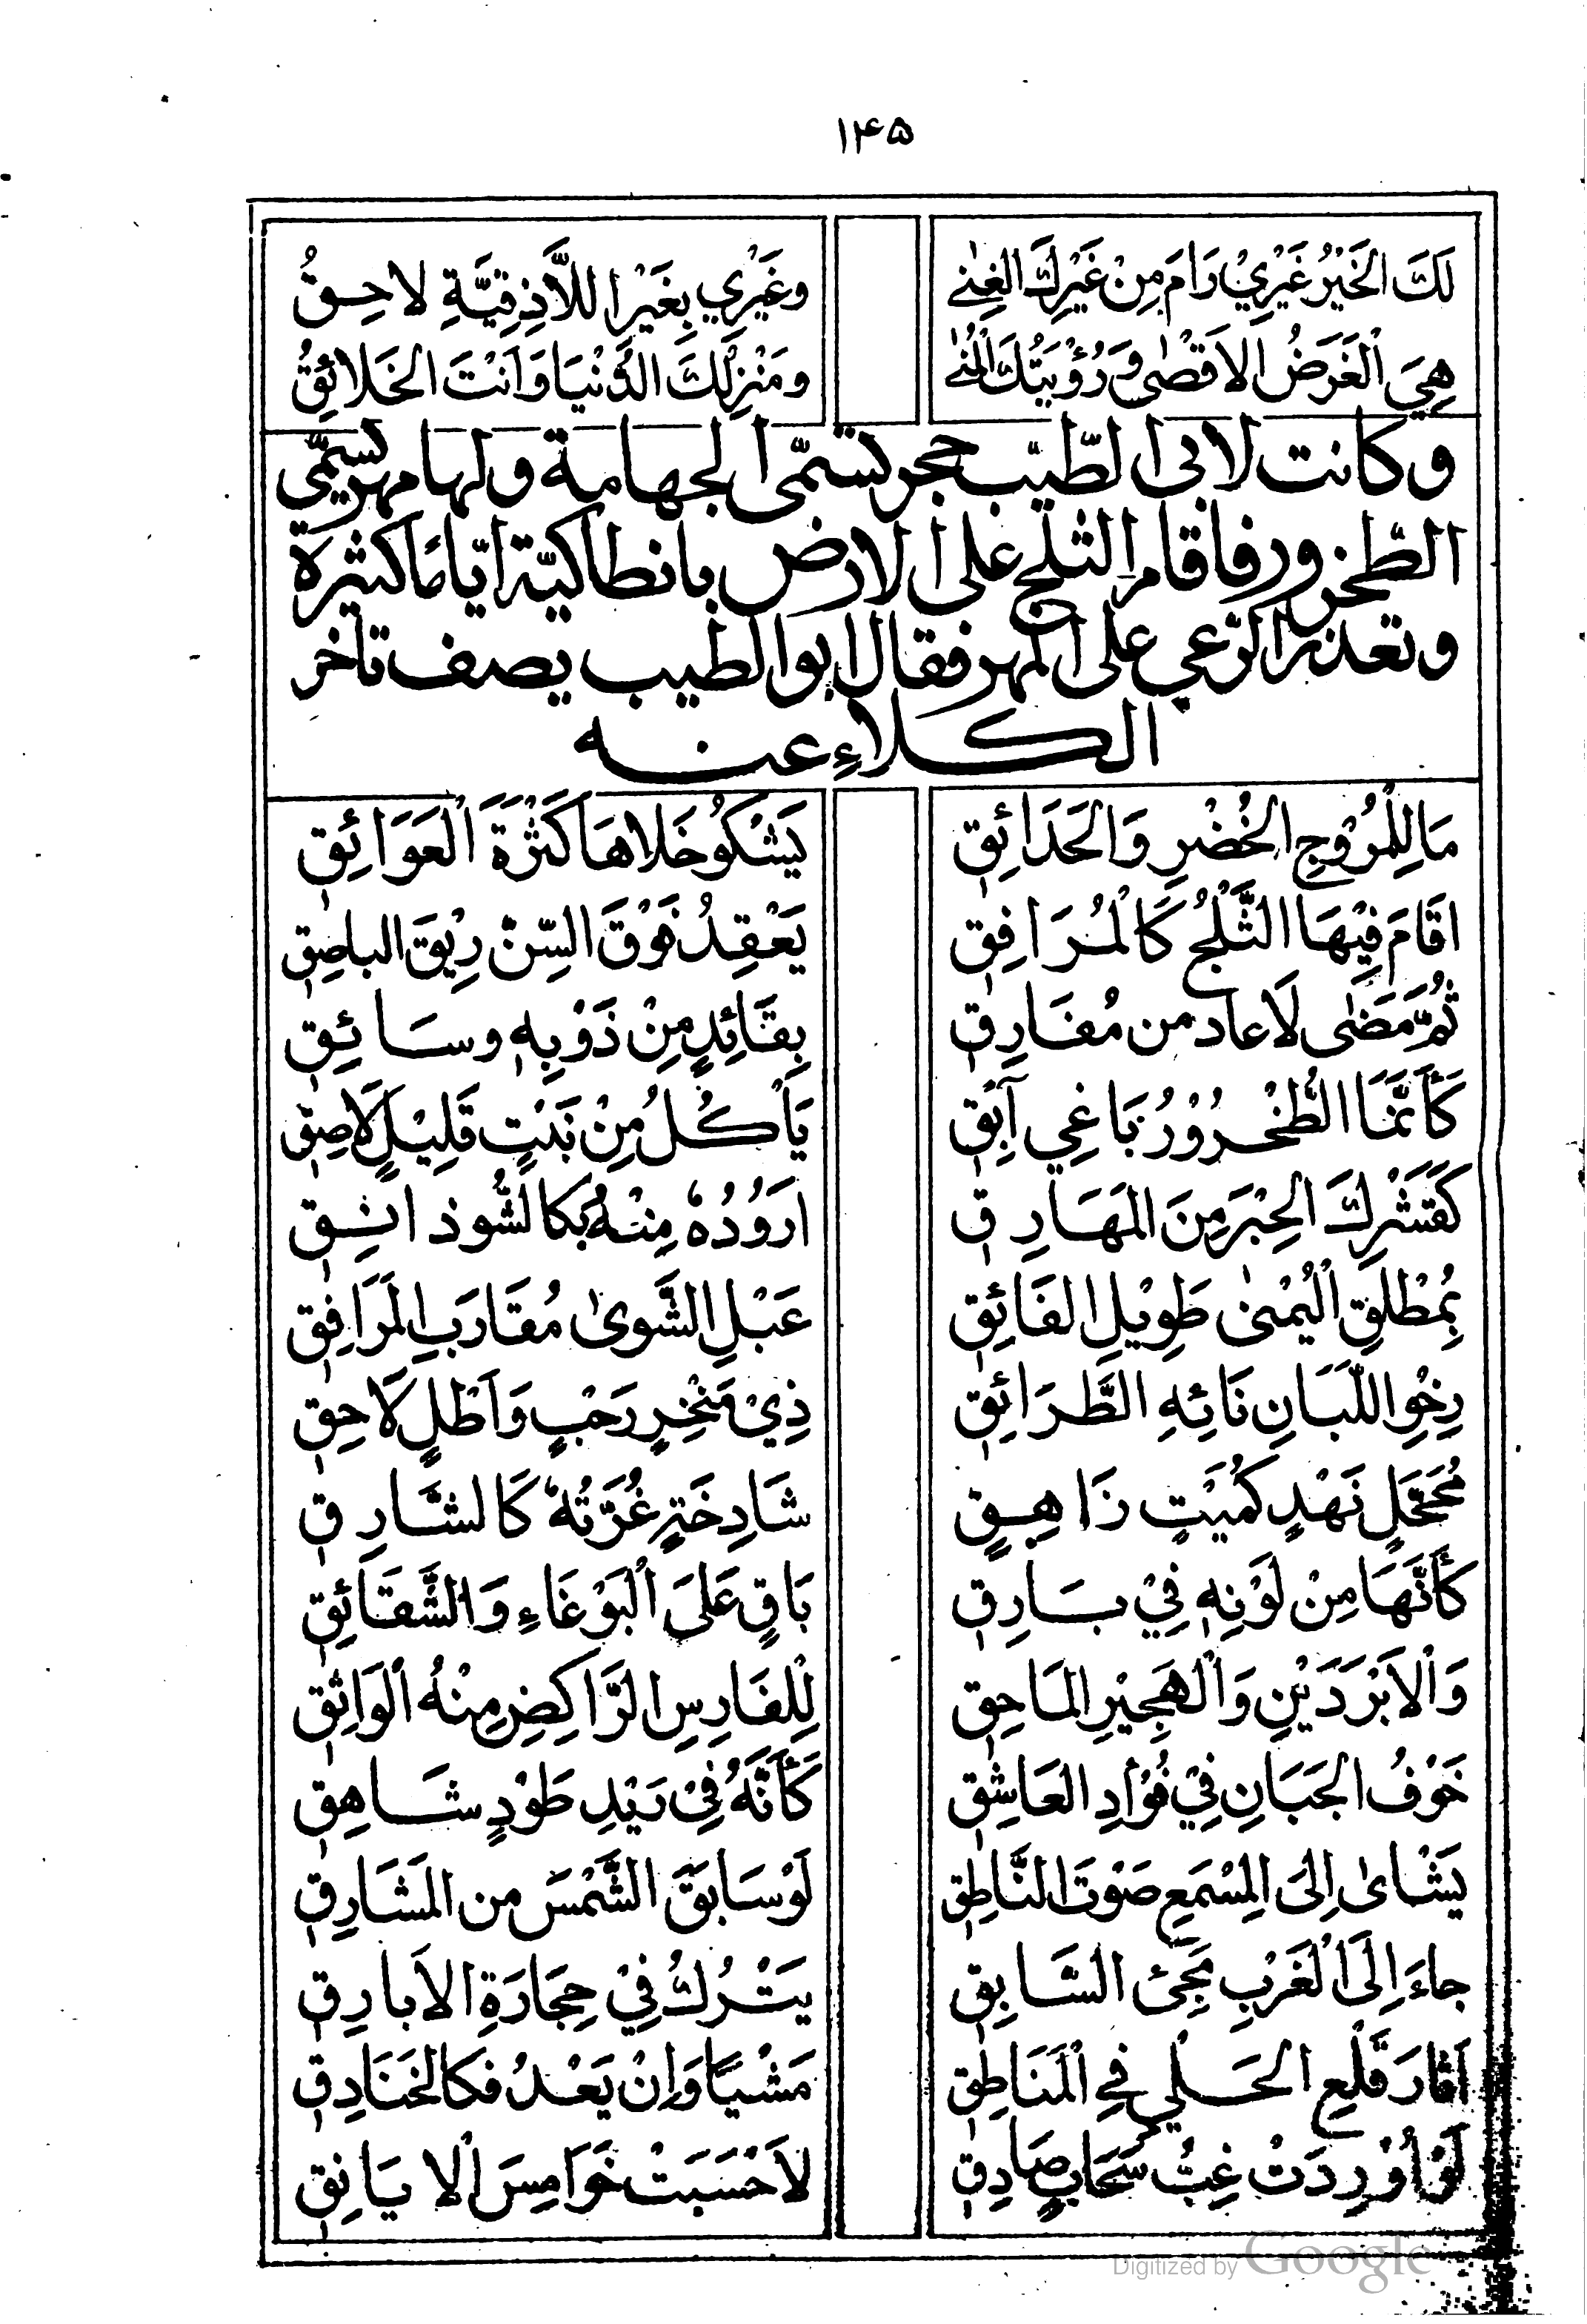 ١٤٥
لَكَ الخَيْرُ غَيْرِيْ رَامَ مِنْ غَيْرِكَ الغِنٰى وغَيْرِي بِغَيْرِ اللَّاذِقِيَّةِ لاحِقُ
هِيَ الْغَرَضُ الاَقْصٰى وَرُؤْيَتُكَ الْمُنٰى ومَنْزِلُكَ الدُّنْيَا وَاَنْتَ الخَلائِقُ
وكانت لابى الطّيّب حجر تسمّى الجهامة ولها مهر يسمّى
الطّخرور فاقام الثلج على الارض بانطاكيّة ايّامًا كثيرة
وتعذر الرّعي على المهر فقال ابو الطيب يصف تاخر
الكلاءِ عنه
مَا لِلْمُرُوْجِ الخُضْرِ وَالحَدَائِقِ يَشْكُو خَلاهَا كَثْرَةَ الْعَوَائِقِ
اقَامَ فِيْهَا الثَّلْجُ كَالْمُرَافِقِ يَعْقِدُ فَوْقَ السِّنِّ رِيْقَ الباصِقِ
ثُمَّ مَضٰى لَا عاد من مُفَارِقِ بِقَائِدٍ مِنْ ذَوْبِهِ وسَائِقِ
كَأَنَّمَا الطُّخْرُوْرُ بَاغِي آبِقِ يَأْكُلُ مِنْ نَبْتٍ قَلِيْلٍ لَاصِقِ
كَقَشْرِكَ الحِبْرَ مِنَ المَهَارِقِ ارَوُدُهُ مِنْهُ بِكَالشُّوذانِقِ
بِمُطْلَقِ الْيُمْنٰى طَوِيْلِ الفَائِقِ عَبْلِ الشَّوىٰ مُقَارَبِ المَرَافِقِ
رِخْوِ اللَّبَانِ نَائِهِ الطَّرَائِقِ ذِيْ مَنْخِرٍ رَحْبٍ وَاَطْلٍ لَاحِقِ
مُحَجَّلٍ نَهْدٍ كُمَيْتٍ زَاهِقٍ شَادِخَةٍ غُرَّتُهُ كَالشَّارِقِ
كَأَنَّهَا مِنْ لَوْنِهِ فِيْ بَارِقِ بَاقٍ عَلَى الْبَوْغَاءِ وَالشَّقَائِقِ
وَالْاَبْرَدَيْنِ وَالْهَجِيْرِ المَاحِقِ لِلْفَارِسِ الرَّاكِضِ مِنْهُ الْوَاثِقِ
خَوْفُ الجَبَانِ فِيْ فُؤَادِ العَاشِقِ كَأَنَّهُ فِيْ رَيْدِ طَوْدٍ شَاهِقِ
يَشْاىٰ اِلَى المِسْمَعِ صَوْتَ النَّاطِقِ لَوْ سَابَقَ الشَّمْسَ من المَشَارِقِ
جاءَ اِلَى الْغَرْبِ مَجِئَ السَّابِقِ يَتْرُكُ فِيْ حِجَارَةِ الاَبارِقِ
اٰثارَ قَلْعِ الحَلْىِ فِي الْمَنَاطِقِ مَشْيًا وَاِنْ يَعْدُ فكالخَنَادِقِ
لَوْ اُوْرِدَتْ غِبَّ سَحَابٍ صَادِقِ لاَحْسَبَتْ خَوَامِسَ الْايَانِقِ
Digitized by Google